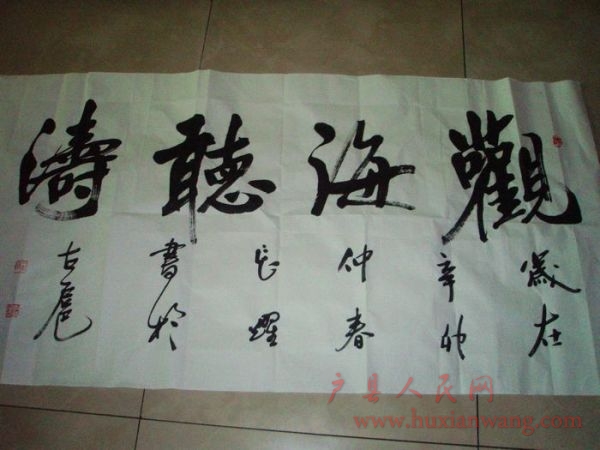 觀海聽濤
歲在
辛卯
仲春
長
書於
古扈
户县人民网
www.huxianwang.com